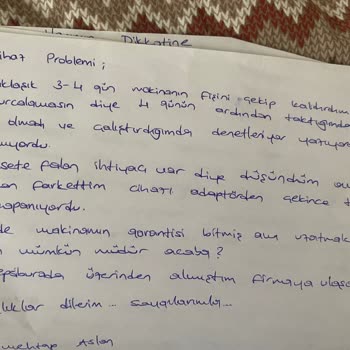 Dikkatine
ihaz Problemi;
aklaşık 3-4 gün makinanın fişini çekip kaldırdım
urcalamasın diye 4 günün ardından taktığımda
olmadı ve çalıştırdığımda denetleniyor yazıyor
ıyordu.
sete falan ihtiyacı var diye düşündüm
farkettim cihazı adaptörden çekince
kapanıyordu.
de makinamın garantisi bitmiş ama uzatmak
mümkün müdür acaba?
epsiburada üzerinden almıştım firmaya ulaş
lıklar dilerim... saygılarımla...
mehtap Aslan